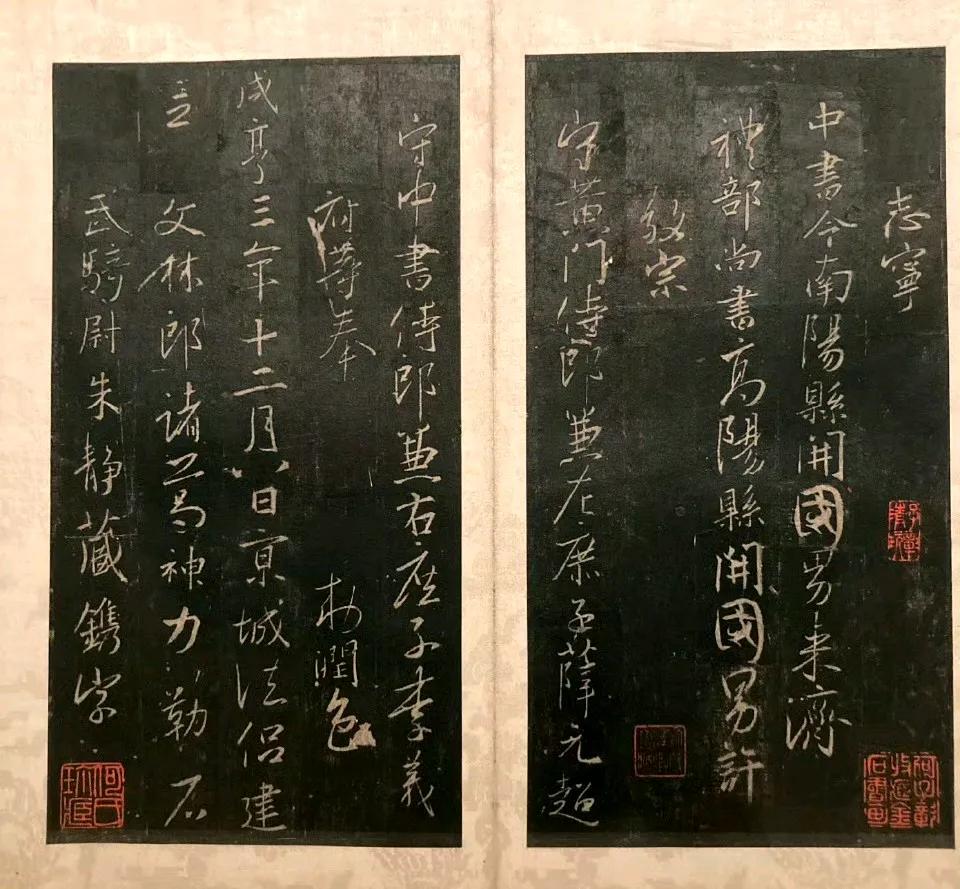 志寧
中書令南陽縣開國男来濟
禮部尚書高陽縣開國男許
敬宗
守黃門侍郎兼左庶子薛元超
守中書侍郎兼右庶子李義
府等奉 勅潤色
咸亨三年十二月八日京城法侶建
立 文林郎諸葛神力勒石
武騎尉朱靜藏鐫字